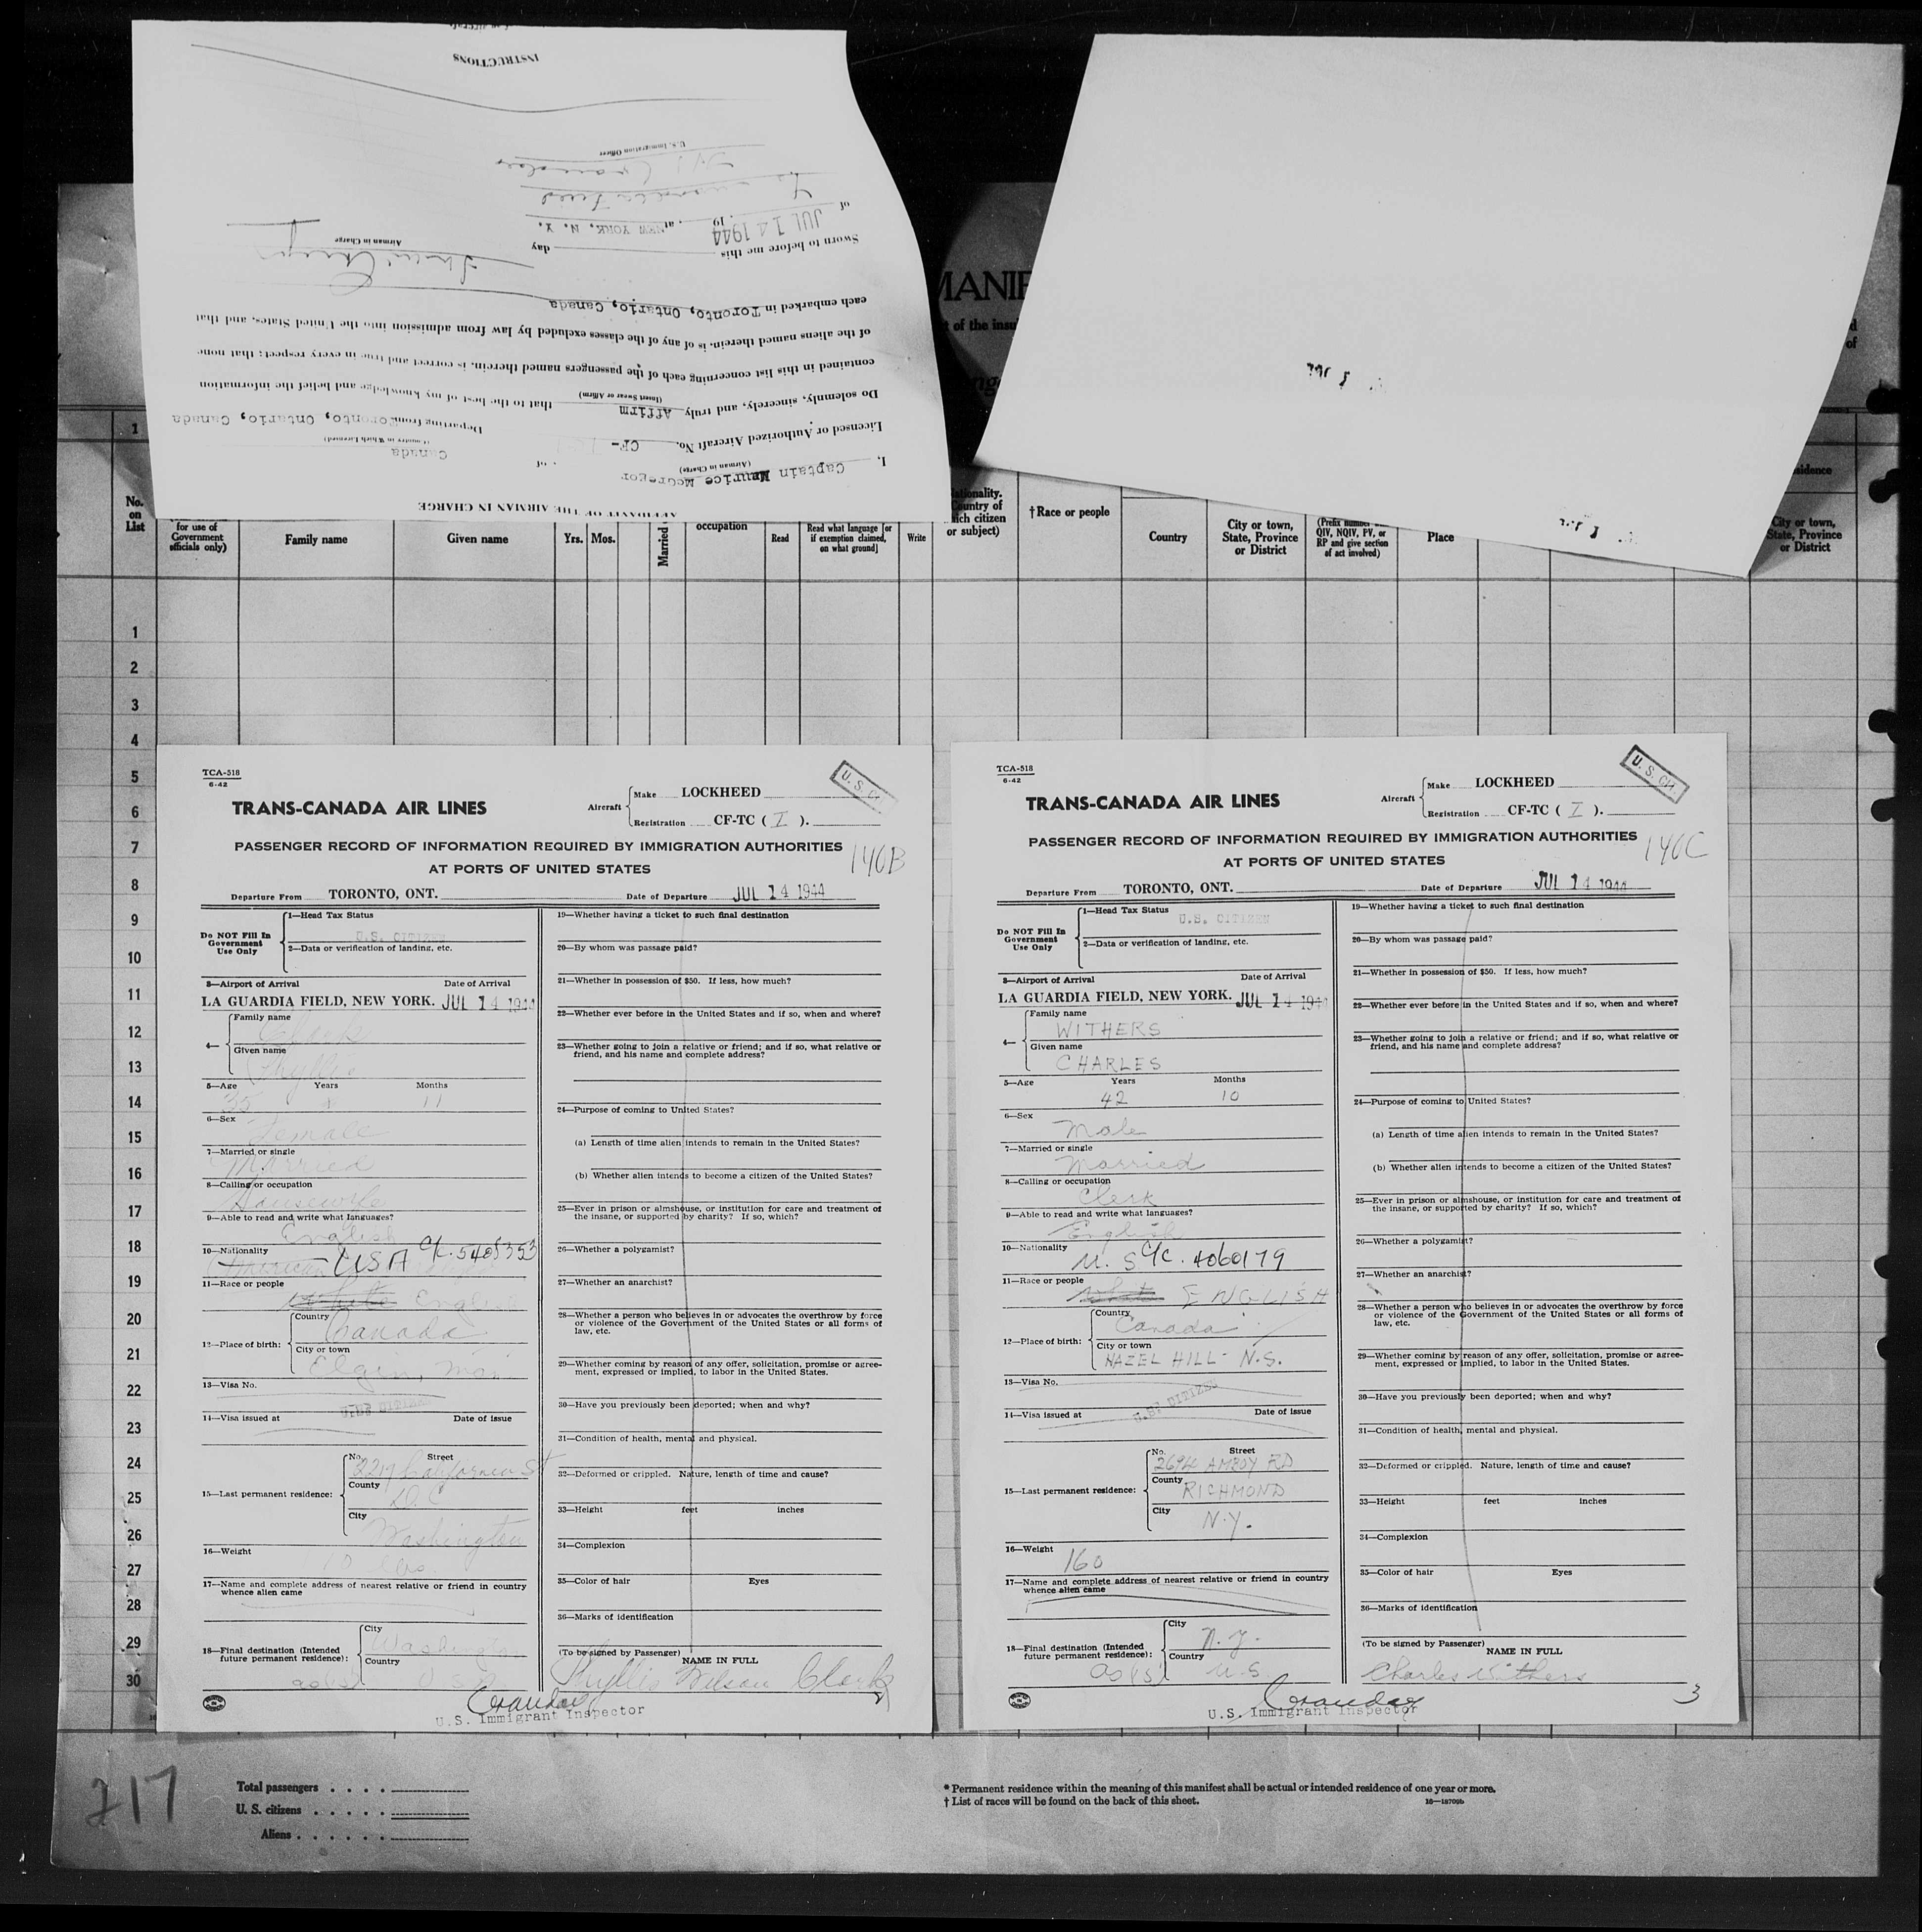 INSTRUCTIONS
U.S. Immigration Officer
of
JUL 14 1944 19 , at NEW YORK, N. Y.
Sworn to before me this day
Airman in Charge
each embarked in Toronto, Ontario, Canada
of the aliens named therein, is of any of the classes excluded by law from admission into the United States, and that
contained in this list concerning each of the passengers named therein, is correct and true in every respect; that none
(Insert Swear or Affirm)
Do solemnly, sincerely, and truly Affirm that to the best of my knowledge and belief the information
Licensed or Authorized Aircraft No. CF- Departing from Toronto, Ontario, Canada
(Airman in Charge) (Country in Which Licensed)
I, Captain Maurice McGregor of Canada
AFFIDAVIT OF THE AIRMAN IN CHARGE
MANIF
of the insu
d
of
1
No. on List
for use of Government officials only)
Family name
Given name
Yrs.
Mos.
Married
occupation
Read
Read what language [or if exemption claimed, on what ground]
Write
ationality.
Country of
ich citizen
or subject)
† Race or people
Country
City or town, State, Province or District
(Prefix number
QIV, NQIV, PV, or
RP and give section
of act involved)
Place
sidence
City or town, State, Province or District
1
2
3
4
5
6
7
8
9
10
11
12
13
14
15
16
17
18
19
20
21
22
23
24
25
26
27
28
29
30
TCA-518
6-42
TRANS-CANADA AIR LINES
Aircraft
Make LOCKHEED
Registration CF-TC ( I ).
U. S. CI
PASSENGER RECORD OF INFORMATION REQUIRED BY IMMIGRATION AUTHORITIES
AT PORTS OF UNITED STATES
140B
Departure From TORONTO, ONT. Date of Departure JUL 14 1944
Do NOT Fill In Government Use Only
1—Head Tax Status
U.S. CITIZEN
2—Data or verification of landing, etc.
3—Airport of Arrival Date of Arrival
LA GUARDIA FIELD, NEW YORK. JUL 14 1944
4—
Family name
Clark
Given name
Phyllis
5—Age Years Months
35 11
6—Sex
Female
7—Married or single
Married
8—Calling or occupation
Housewife
9—Able to read and write what languages?
English
10—Nationality
American USA C/c. 5408353
11—Race or people
White English
12—Place of birth:
Country
Canada
City or town
Elgin, Man
13—Visa No.
U.S. CITIZEN
14—Visa issued at Date of issue
15—Last permanent residence:
No. Street
2219 California St
County
D.C
City
Washington
16—Weight
lbs
17—Name and complete address of nearest relative or friend in country
whence alien came
18—Final destination (Intended
future permanent residence):
City
Washington
Country
U S
19—Whether having a ticket to such final destination
20—By whom was passage paid?
21—Whether in possession of $50. If less, how much?
22—Whether ever before in the United States and if so, when and where?
23—Whether going to join a relative or friend; and if so, what relative or
friend, and his name and complete address?
24—Purpose of coming to United States?
(a) Length of time alien intends to remain in the United States?
(b) Whether alien intends to become a citizen of the United States?
25—Ever in prison or almshouse, or institution for care and treatment of
the insane, or supported by charity? If so, which?
26—Whether a polygamist?
27—Whether an anarchist?
28—Whether a person who believes in or advocates the overthrow by force
or violence of the Government of the United States or all forms of
law, etc.
29—Whether coming by reason of any offer, solicitation, promise or agree-
ment, expressed or implied, to labor in the United States.
30—Have you previously been deported; when and why?
31—Condition of health, mental and physical.
32—Deformed or crippled. Nature, length of time and cause?
33—Height feet inches
34—Complexion
35—Color of hair Eyes
36—Marks of identification
(To be signed by Passenger) NAME IN FULL
Phyllis Wilson Clark
Cranday
U.S. Immigrant Inspector
TCA-518
6-42
TRANS-CANADA AIR LINES
Aircraft
Make LOCKHEED
Registration CF-TC ( I ).
U. S. CIT.
PASSENGER RECORD OF INFORMATION REQUIRED BY IMMIGRATION AUTHORITIES
AT PORTS OF UNITED STATES
140C
Departure From TORONTO, ONT. Date of Departure JUL 14 1944
Do NOT Fill In Government Use Only
1—Head Tax Status
U.S. CITIZEN
2—Data or verification of landing, etc.
3—Airport of Arrival Date of Arrival
LA GUARDIA FIELD, NEW YORK. JUL 14 194
4—
Family name
WITHERS
Given name
CHARLES
5—Age Years Months
42 10
6—Sex
Male
7—Married or single
Married
8—Calling or occupation
Clerk
9—Able to read and write what languages?
English
10—Nationality
U. S C/c. 4060179
11—Race or people
White ENGLISH
12—Place of birth:
Country
Canada
City or town
HAZEL HILL - N.S.
13—Visa No.
U.S. CITIZEN
14—Visa issued at Date of issue
15—Last permanent residence:
No. Street
2694 AMBOY RD
County
RICHMOND
City
N.Y.
16—Weight
160
17—Name and complete address of nearest relative or friend in country
whence alien came
18—Final destination (Intended
future permanent residence):
City
N.Y.
Country
U.S.
19—Whether having a ticket to such final destination
20—By whom was passage paid?
21—Whether in possession of $50. If less, how much?
22—Whether ever before in the United States and if so, when and where?
23—Whether going to join a relative or friend; and if so, what relative or
friend, and his name and complete address?
24—Purpose of coming to United States?
(a) Length of time alien intends to remain in the United States?
(b) Whether alien intends to become a citizen of the United States?
25—Ever in prison or almshouse, or institution for care and treatment of
the insane, or supported by charity? If so, which?
26—Whether a polygamist?
27—Whether an anarchist?
28—Whether a person who believes in or advocates the overthrow by force
or violence of the Government of the United States or all forms of
law, etc.
29—Whether coming by reason of any offer, solicitation, promise or agree-
ment, expressed or implied, to labor in the United States.
30—Have you previously been deported; when and why?
31—Condition of health, mental and physical.
32—Deformed or crippled. Nature, length of time and cause?
33—Height feet inches
34—Complexion
35—Color of hair Eyes
36—Marks of identification
(To be signed by Passenger) NAME IN FULL
Charles Withers
Cranday
U.S. Immigrant Inspector
3
217
Total passengers
U. S. citizens
Aliens
* Permanent residence within the meaning of this manifest shall be actual or intended residence of one year or more.
† List of races will be found on the back of this sheet.